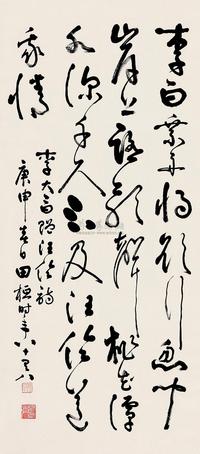 李白乘舟将欲行忽闻
岸上踏歌声桃花潭
水深千尺不及汪伦送
我情
李太白赠汪伦诗
庚申春日田桓时年八十又八